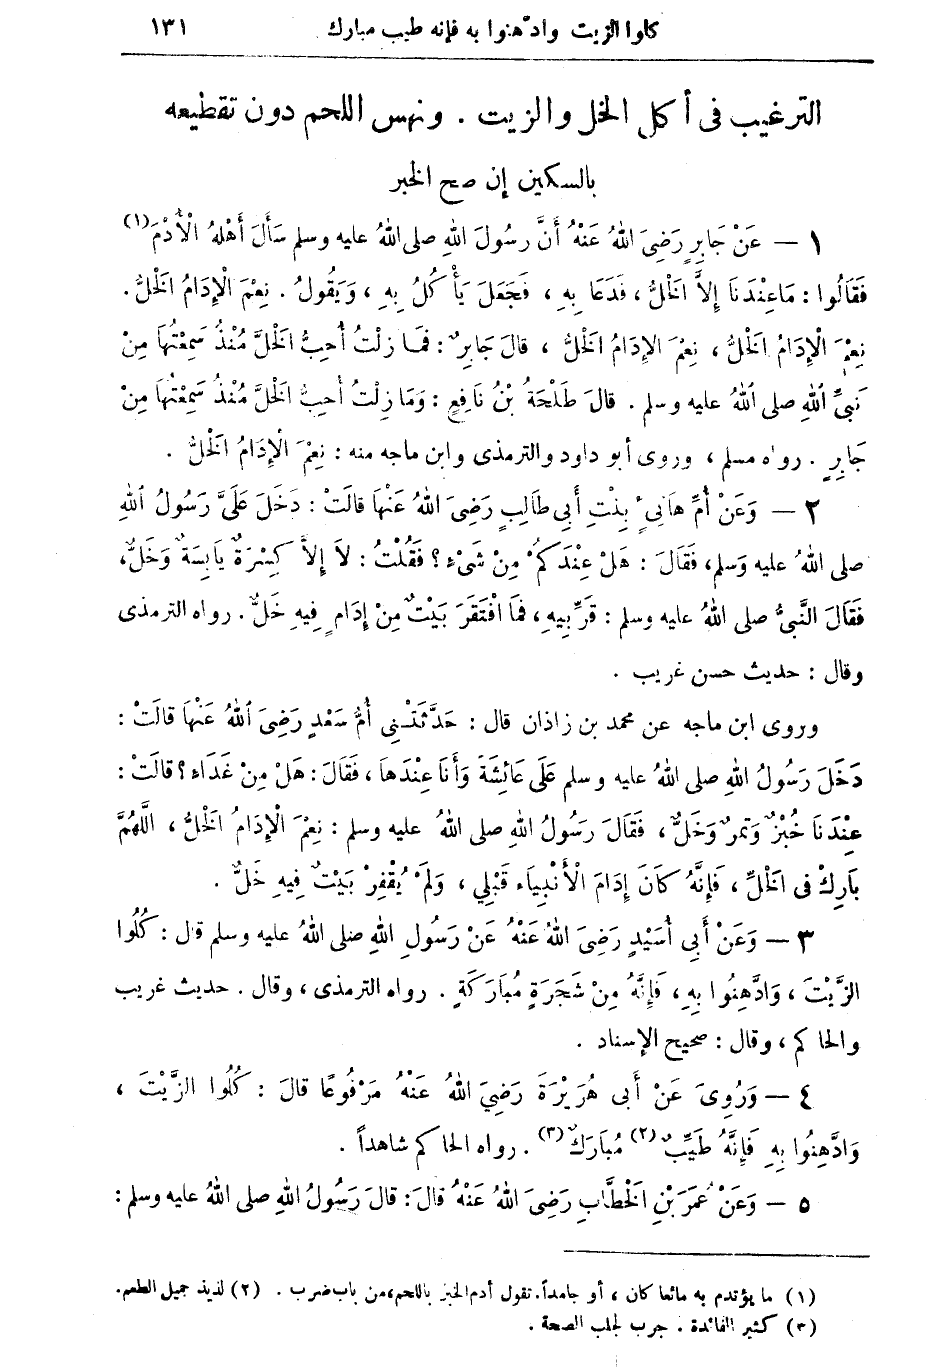 كلوا الزيت وادّهنوا به فإنه طيب مبارك ١٣١
الترغيب فى أكل الخل والزيت . ونهس اللحم دون تقطيعه
بالسكين إن صح الخبر
١ — عَنْ جَابِرٍ رَضِىَ اللهُ عَنْهُ أَنَّ رسُولَ اللهِ صلى اللهُ عليه وسلم سَأَلَ أَهْلَهُ الْأُدْمَ (١)
فَقَالُوا : مَا عِنْدَنَا إِلاَّ الْخَلُّ ، فَدَعَا بِهِ ، فَجَعَلَ يَأْكُلُ بِهِ ، وَيَقُولُ . نِعْمَ الْإِدَامُ الْخَلُّ .
نِعْمَ الْإِدَامُ الْخَلُّ ، نِعْمَ الْإِدَامُ الْخَلُّ ، قالَ جَابِرٌ : فَمَا زِلْتُ أُحِبُّ الْخَلَّ مُنْذُ سَمِعْتُهَا مِنْ
نَبِىِّ اللهِ صلى اللهُ عليه وسلم . قالَ طَلْحَةُ بْنُ نَافِعٍ : وَمَا زِلْتُ أُحِبُّ الْخَلَّ مُنْذُ سَمِعْتُهَا مِنْ
جَابِرٍ . رواه مسلم ، وروى أبو داود والترمذى وابن ماجه منه : نِعْمَ الْإِدَامُ الْخَلُّ .
٢ — وَعَنْ أُمِّ هَانِىءٍ بِنْتِ أَبِي طَالِبٍ رَضِىَ اللهُ عَنْهَا قالَتْ : دَخَلَ عَلَىَّ رَسُولُ اللهِ
صلى اللهُ عليه وَسلم، فَقَالَ : هَلْ عِنْدَكُمْ مِنْ شَىْءٍ ؟ فَقُلْتُ : لاَ إِلاَّ كِسْرَةٌ يَابِسَةٌ وَخَلٌّ،
فَقَالَ النَّبِىُّ صلى اللهُ عليه وسلم : قَرِّبِيهِ ، فَمَا افْتَقَرَ بَيْتٌ مِنْ إِدَامٍ فِيهِ خَلٌّ . رواه الترمذى
وقال : حديث حسن غريب .
وروى ابن ماجه عن محمد بن زاذان قال : حَدَّثَتْنِي أُمُّ سَعْدٍ رَضِىَ اللهُ عَنْهَا قالَتْ :
دَخَلَ رَسُولُ اللهِ صلى اللهُ عليه وسلم عَلَى عَائِشَةَ وَأَنَا عِنْدَهَا ، فَقَالَ : هَلْ مِنْ غَدَاءٍ ؟ قالَتْ :
عِنْدَنَا خُبْزٌ وَتَمْرٌ وَخَلٌّ ، فَقَالَ رَسُولُ اللهِ صلى اللهُ عليه وسلم : نِعْمَ الْإِدَامُ الْخَلُّ ، اللَّهُمَّ
بَارِكْ فى الْخَلِّ ، فَإِنَّهُ كَانَ إِدَامَ الْأَنْبِيَاءِ قَبْلِي ، وَلَمْ يُقْفِرْ بَيْتٌ فِيهِ خَلٌّ .
٣ — وَعَنْ أَبِي أُسَيْدٍ رَضِىَ اللهُ عَنْهُ عَنْ رَسُولِ اللهِ صلى اللهُ عليه وسلم قال : كُلُوا
الزَّيْتَ ، وَادَّهِنُوا بِهِ ، فَإِنَّهُ مِنْ شَجَرَةٍ مُبَارَكَةٍ . رواه الترمذى ، وقال . حديث غريب
والحاكم ، وقال : صحيح الإسناد .
٤ — وَرُوِىَ عَنْ أَبى هُرَيْرَةَ رَضِيَ اللهُ عَنْهُ مَرْفُوعًا قالَ : كُلُوا الزَّيْتَ ،
وَادَّهِنُوا بِهِ فَإِنَّهُ طَيِّبٌ (٢) مُبَارَكٌ (٣) . رواه الحاكم شاهداً .
٥ — وَعَنْ عُمَرَ بْنِ الْخَطَّابِ رَضِىَ اللهُ عَنْهُ قالَ : قالَ رَسُولُ اللهِ صلى اللهُ عليه وسلم :
(١) ما يؤتدم به مائعا كان ، أو جامداً. تقول أدم الخبز باللحم،من باب ضرب . (٢) لذيذ جميل الطعم.
(٣) كثير الفائدة . جرب لجلب الصحة .